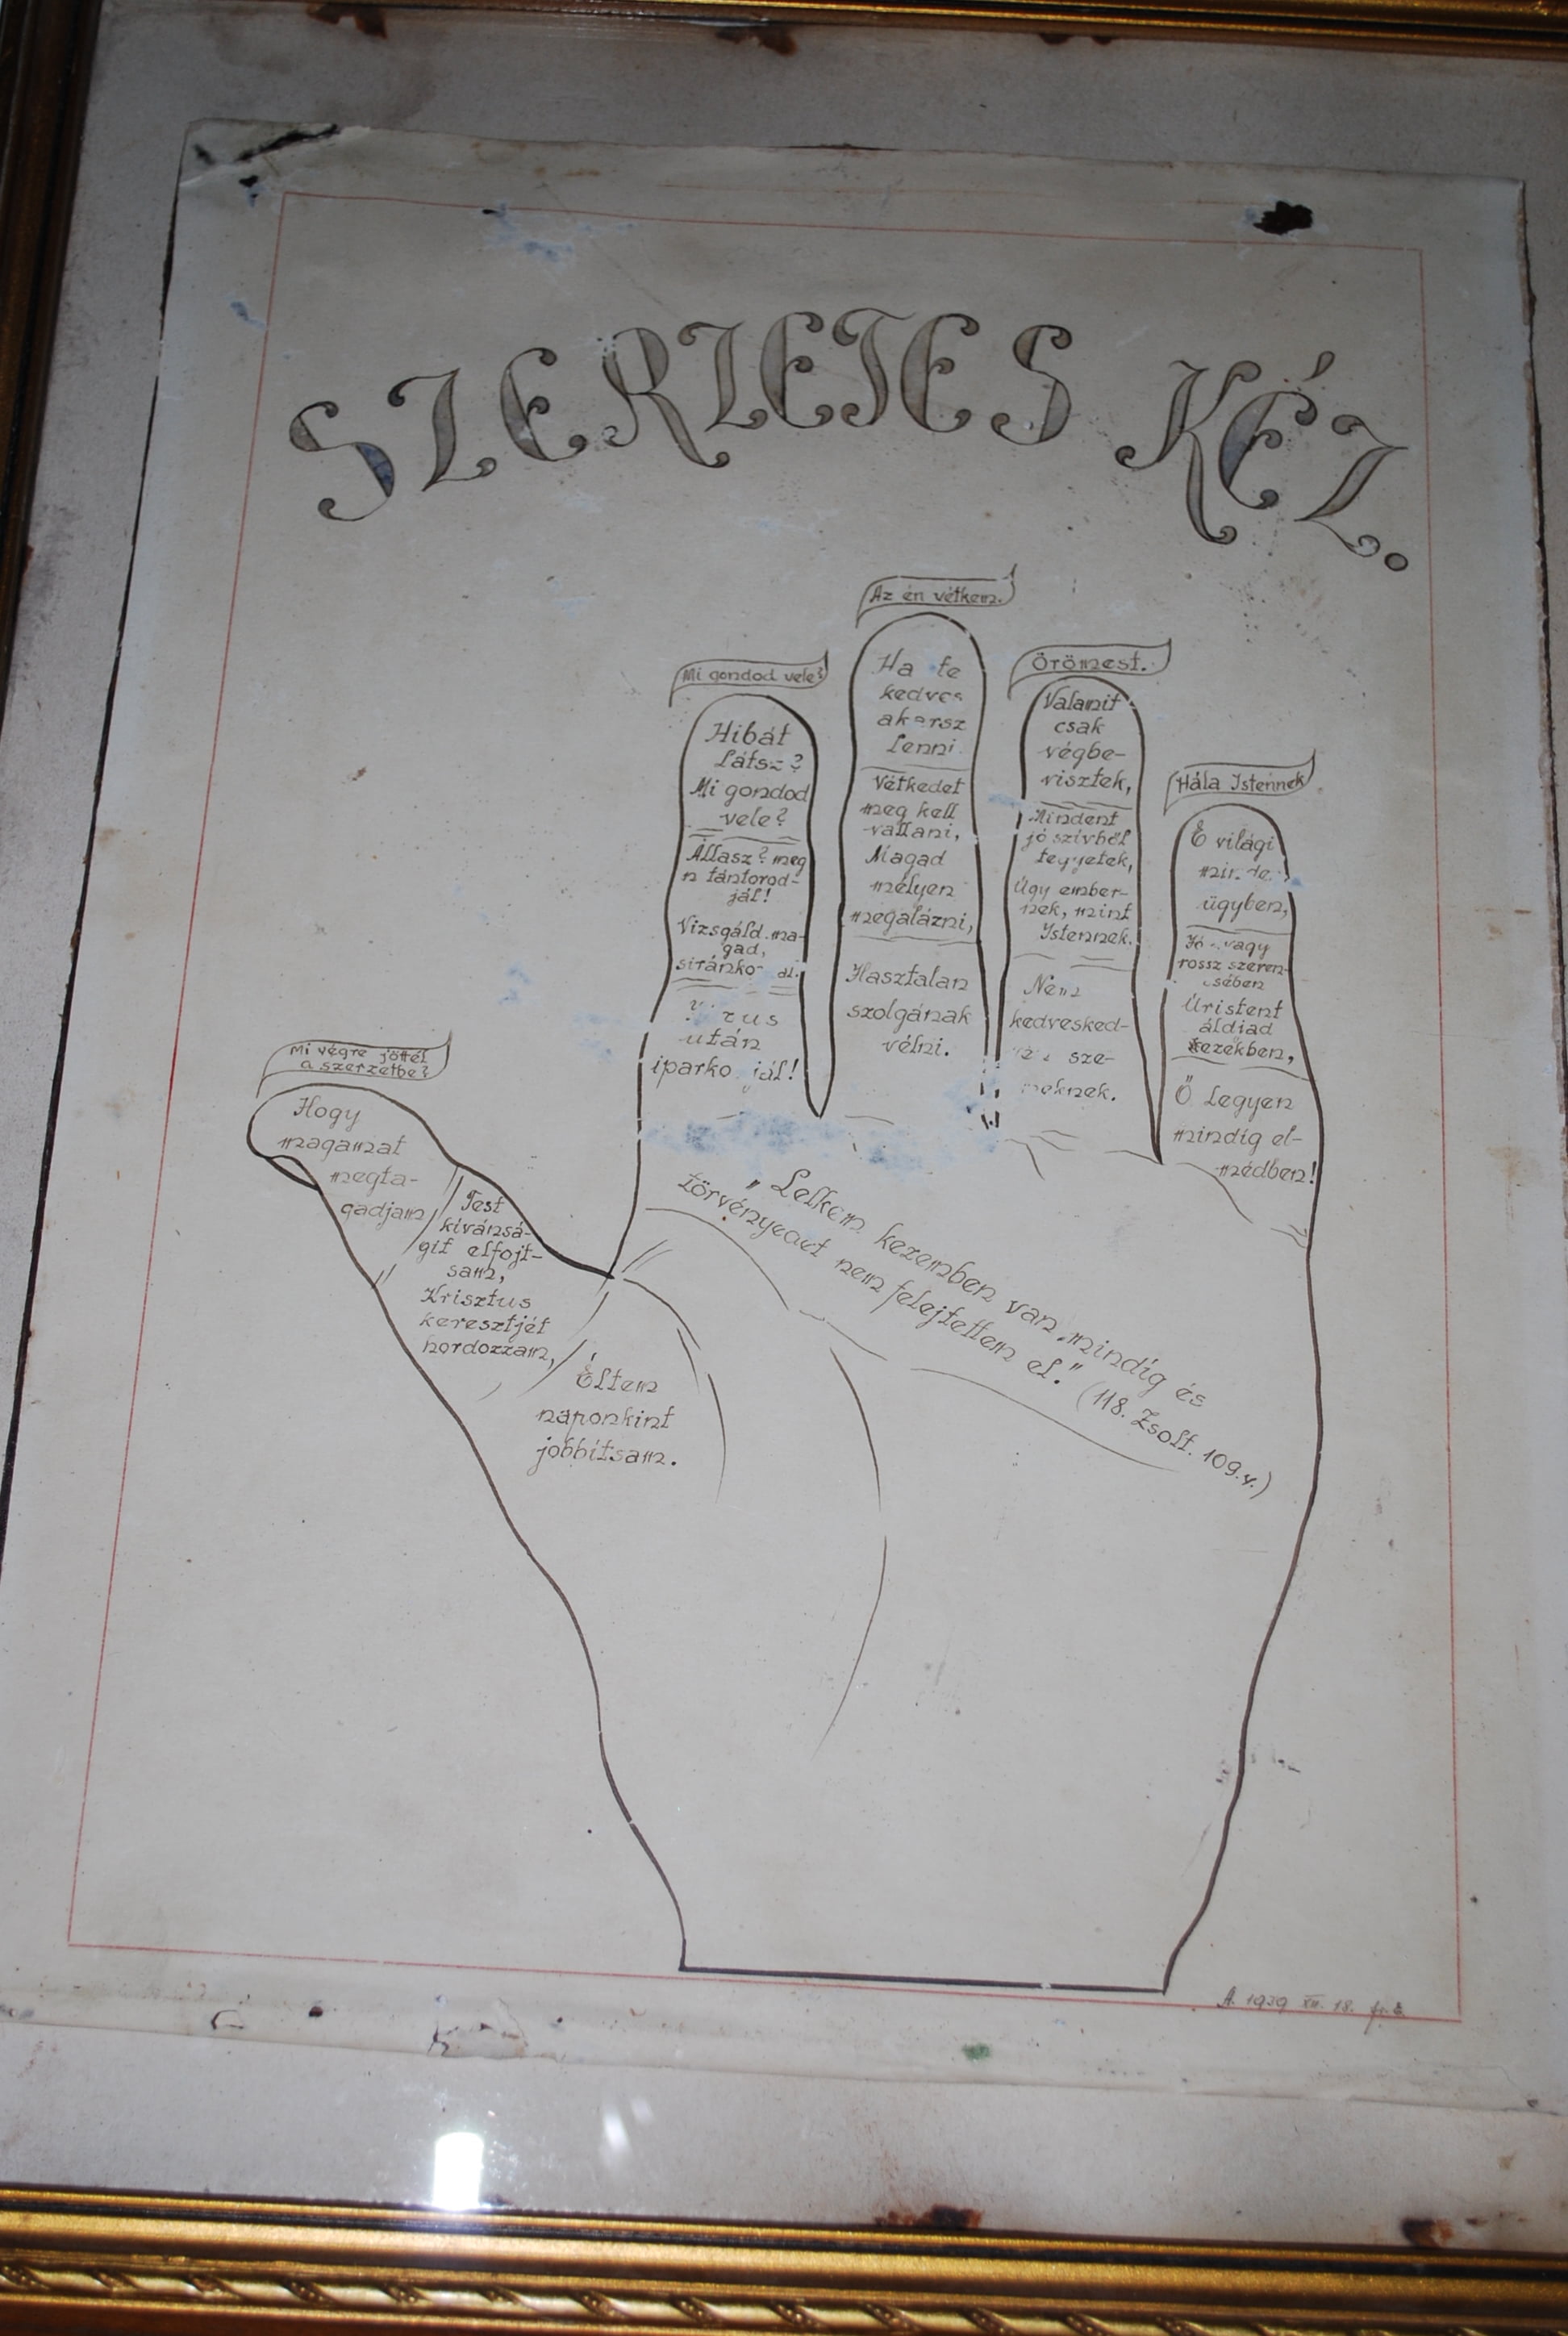 SZERZETES KÉZ.
Mi végre jöttél
a szerzetbe?
Hogy
magamat
megta-
gadjam
Test
kívánsá-
git elfojt-
sam,
Krisztus
keresztjét
hordozzam,
Éltem
naponkint
jobbítsam.
Mi gondod vele?
Hibát
Látsz?
Mi gondod
vele?
Állasz? meg
n tántorod-
jál!
Vizsgáld ma-
gad,
után
Az én vétkem.
Ha te
kedves
akarsz
lenni
Vétkedet
meg kell
vallani,
Magad
mélyen
megalázni,
Hasztalan
szolgának
vélni.
Örömest.
Valamit
csak
végbe-
visztek,
Mindent
jó szívből
tegyetek,
Úgy ember-
nek, mint
Istennek.
Nem
kedvesked-
sze-
Hála Istennek
E világi
ügyben,
Jó vagy
rossz szeren-
csében
Úristent
áldjad
ezekben,
Ő Legyen
mindig el-
médben!
"Lelkem kezemben van mindig és
törvényedet nem felejtettem el." (118. Zsolt. 109.v.)
A. 1939 XII. 18.